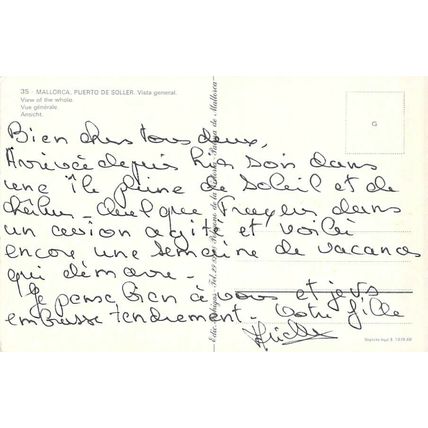 35 - MALLORCA. PUERTO DE SOLLER. Vista general.
View of the whole.
Vue générale
Ansicht.
G
Bien chers tous deux,
Arrivée depuis hier soir dans
une île pleine de soleil et de
chaleur. Quelques frayeurs dans
un avion agité et voilà
encore une semaine de vacances
qui démarre.
Je pense bien à vous et je vs
embrasse tendrement. Votre fille